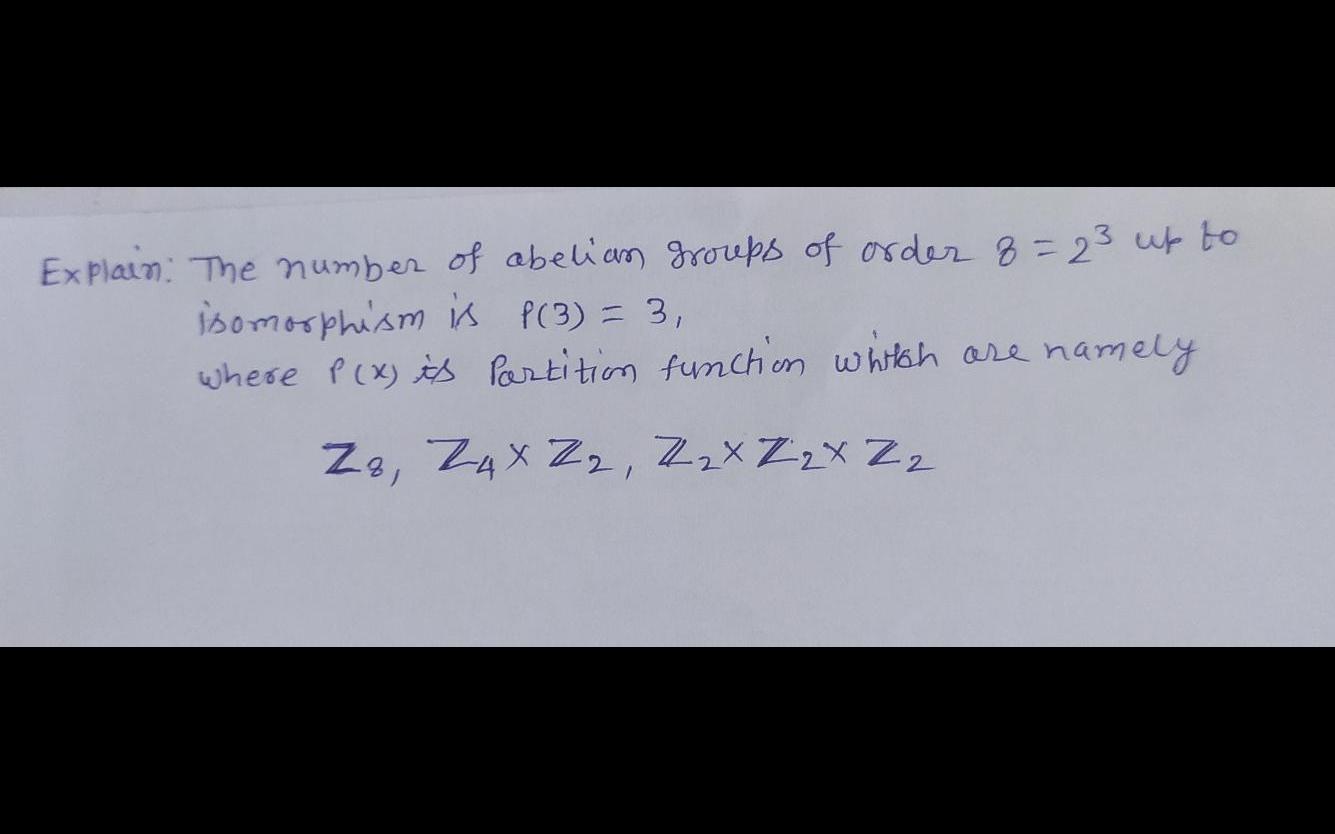 Explain: The number of abelian groups of order 8 = 2³ up to
isomorphism is P(3) = 3,
where P(x) is Partition function which are namely
ℤ₈, ℤ₄ × ℤ₂, ℤ₂ × ℤ₂ × ℤ₂